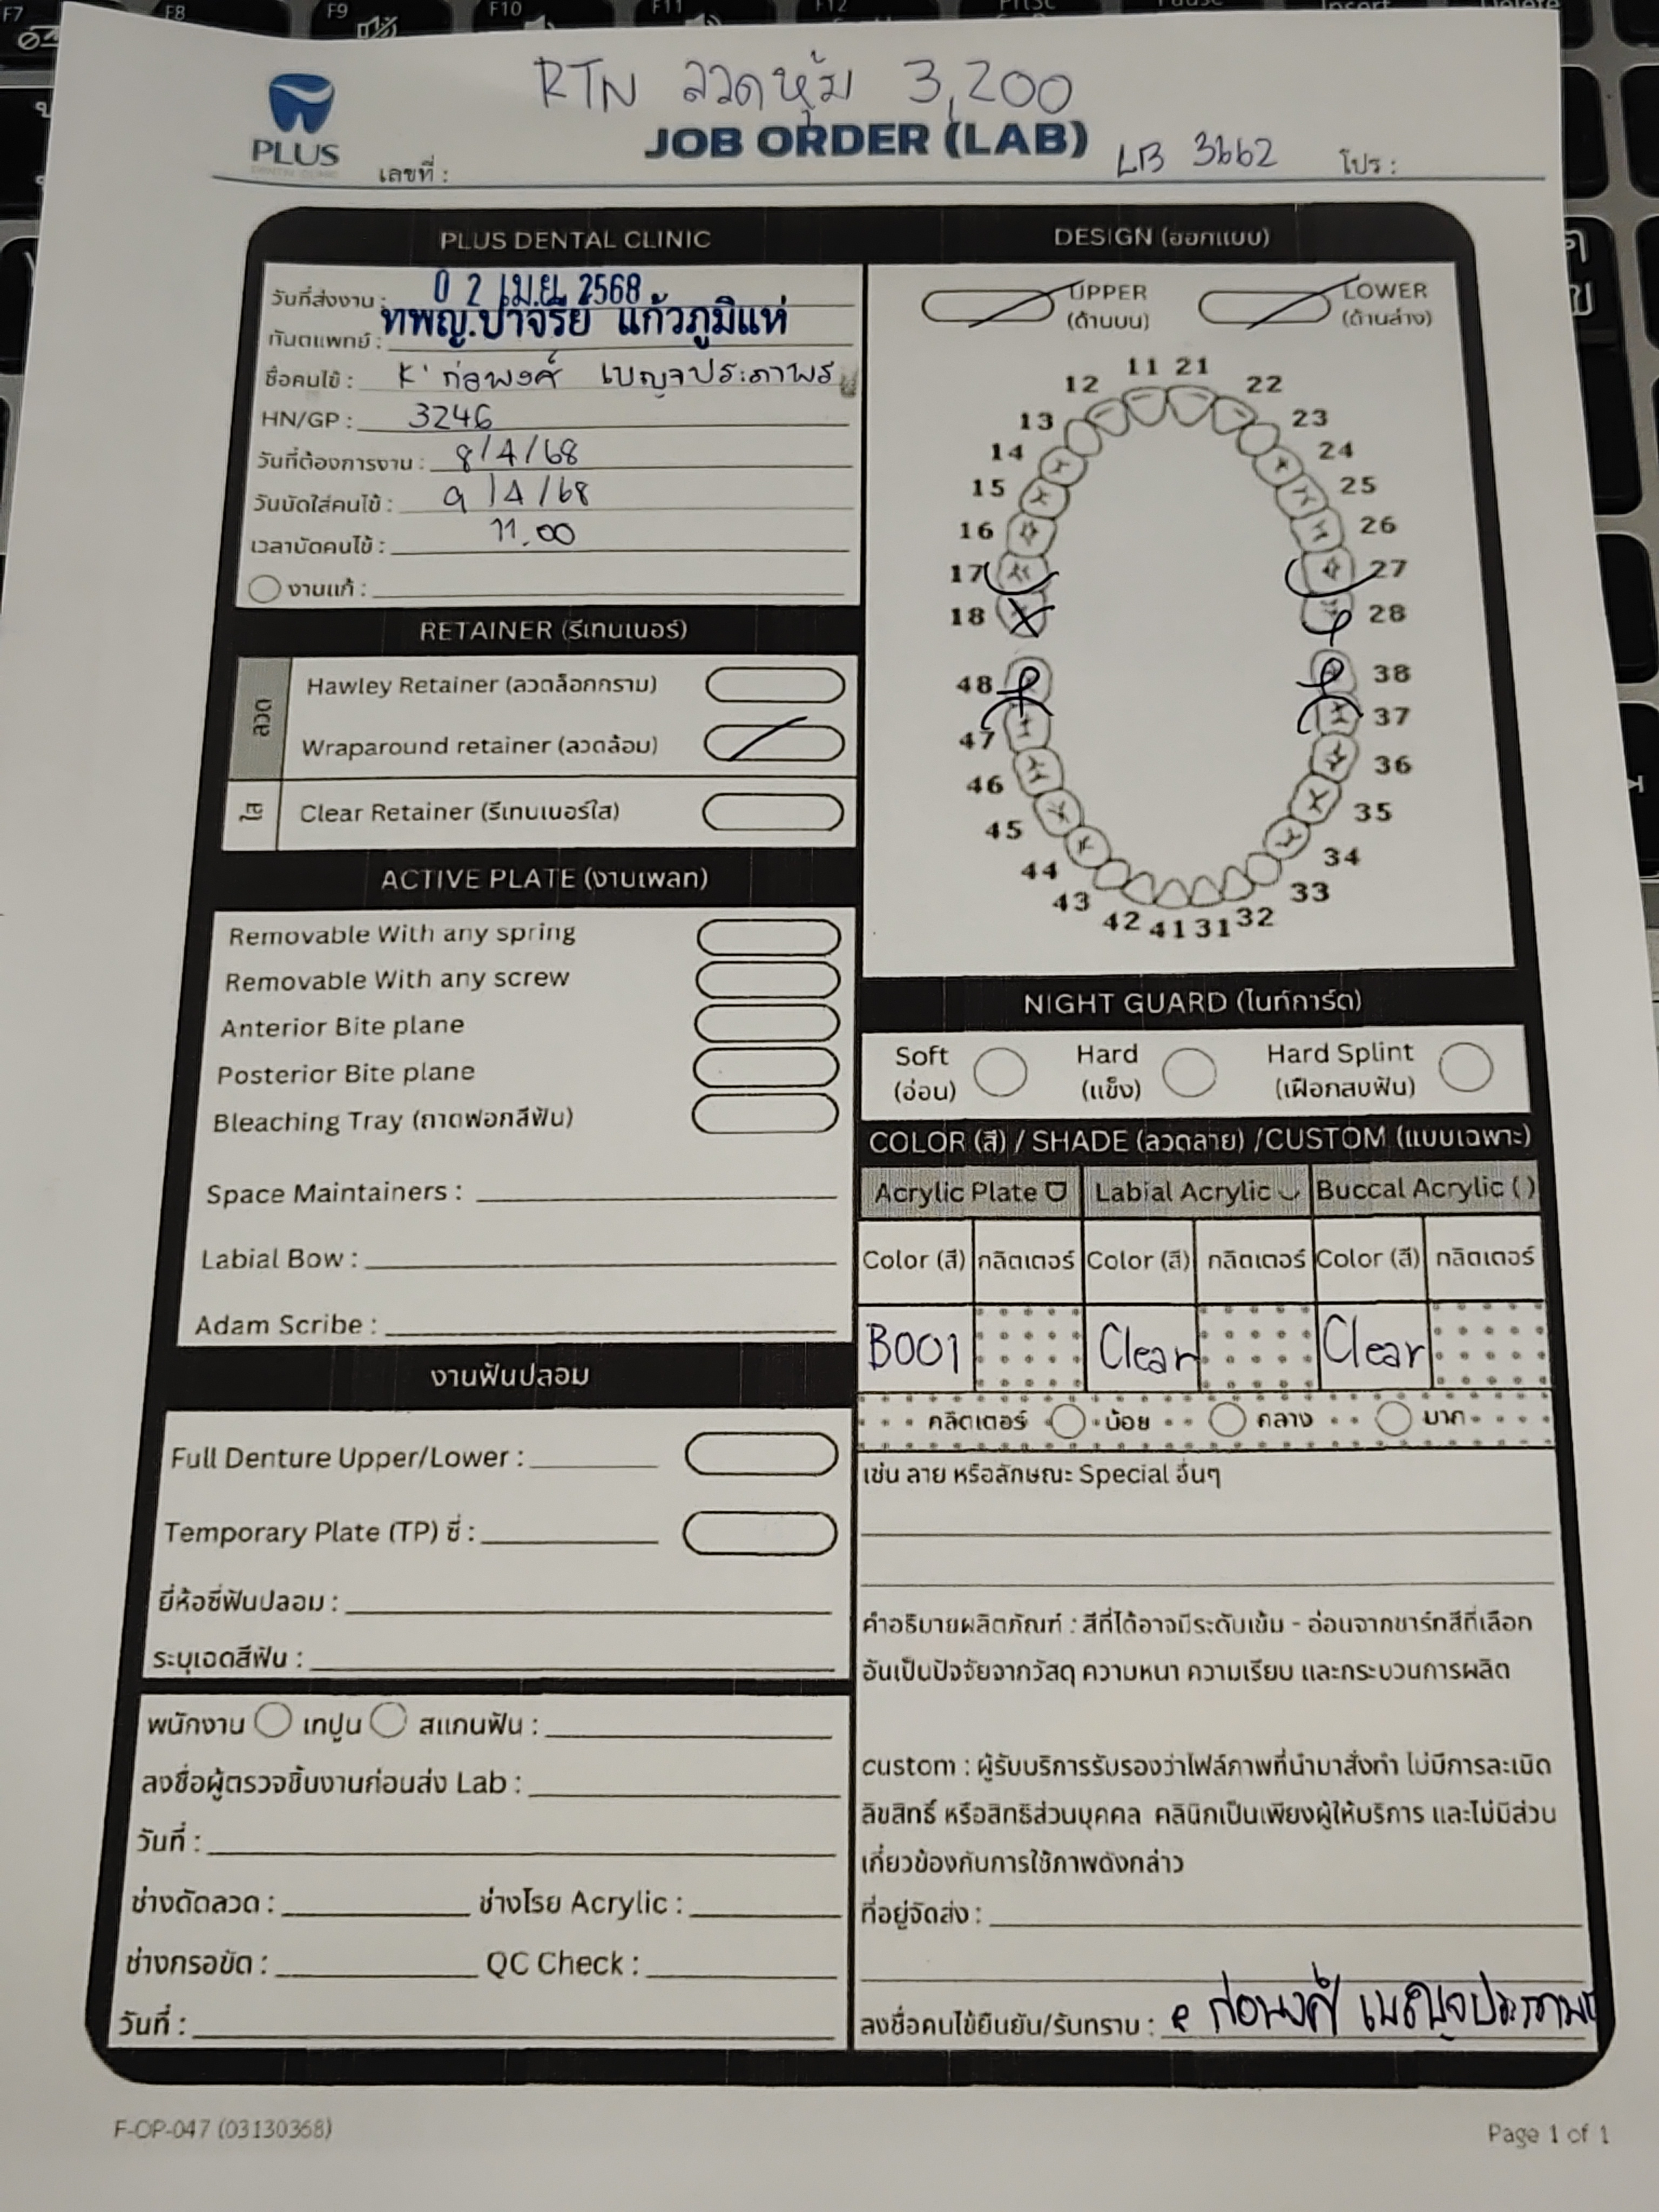 F7 F8 F9 F10 F11 F12
RTN ลวดหุ้ม 3,200
PLUS
DENTAL CLINIC
JOB ORDER (LAB)
เลขที่ :
LB 3662
โปร :
PLUS DENTAL CLINIC
วันที่ส่งงาน : 0 2 เม.ย. 2568
ทันตแพทย์ : ทพญ.ปาจรีย์ แก้วภูมิแห่
ชื่อคนไข้ : K' ก่อพงศ์ เบญจประภาพร
HN/GP : 3246
วันที่ต้องการงาน : 8/4/68
วันนัดใส่คนไข้ : 9/4/68
เวลานัดคนไข้ : 11.00
งานแก้ :
RETAINER (รีเทนเนอร์)
ลวด
Hawley Retainer (ลวดล็อกกราม)
Wraparound retainer (ลวดล้อม)
ใส
Clear Retainer (รีเทนเนอร์ใส)
ACTIVE PLATE (งานเพลท)
Removable With any spring
Removable With any screw
Anterior Bite plane
Posterior Bite plane
Bleaching Tray (ถาดฟอกสีฟัน)
Space Maintainers :
Labial Bow :
Adam Scribe :
งานฟันปลอม
Full Denture Upper/Lower :
Temporary Plate (TP) ซี่ :
ยี่ห้อซี่ฟันปลอม :
ระบุเฉดสีฟัน :
พนักงาน เทปูน สแกนฟัน :
ลงชื่อผู้ตรวจชิ้นงานก่อนส่ง Lab :
วันที่ :
ช่างดัดลวด : ช่างโรย Acrylic :
ช่างกรอขัด : QC Check :
วันที่ :
DESIGN (ออกแบบ)
UPPER
(ด้านบน)
LOWER
(ด้านล่าง)
11 21
12 22
13 23
14 24
15 25
16 26
17 27
18 28
48 38
47 37
46 36
45 35
44 34
43 33
42 41 31 32
NIGHT GUARD (ไนท์การ์ด)
Soft
(อ่อน)
Hard
(แข็ง)
Hard Splint
(เฝือกสบฟัน)
COLOR (สี) / SHADE (ลวดลาย) /CUSTOM (แบบเฉพาะ)
Acrylic Plate Labial Acrylic Buccal Acrylic ( )
Color (สี) กลิตเตอร์ Color (สี) กลิตเตอร์ Color (สี) กลิตเตอร์
B001 Clear Clear
คลิตเตอร์ น้อย กลาง มาก
เช่น ลาย หรือลักษณะ Special อื่นๆ
คำอธิบายผลิตภัณฑ์ : สีที่ได้อาจมีระดับเข้ม - อ่อนจากชาร์ทสีที่เลือก
อันเป็นปัจจัยจากวัสดุ ความหนา ความเรียบ และกระบวนการผลิต
custom : ผู้รับบริการรับรองว่าไฟล์ภาพที่นำมาสั่งทำ ไม่มีการละเมิด
ลิขสิทธิ์ หรือสิทธิส่วนบุคคล คลินิกเป็นเพียงผู้ให้บริการ และไม่มีส่วน
เกี่ยวข้องกับการใช้ภาพดังกล่าว
ที่อยู่จัดส่ง :
ลงชื่อคนไข้ยืนยัน/รับทราบ : ก่อพงศ์ เบญจประภาพร
F-OP-047 (03130368)
Page 1 of 1